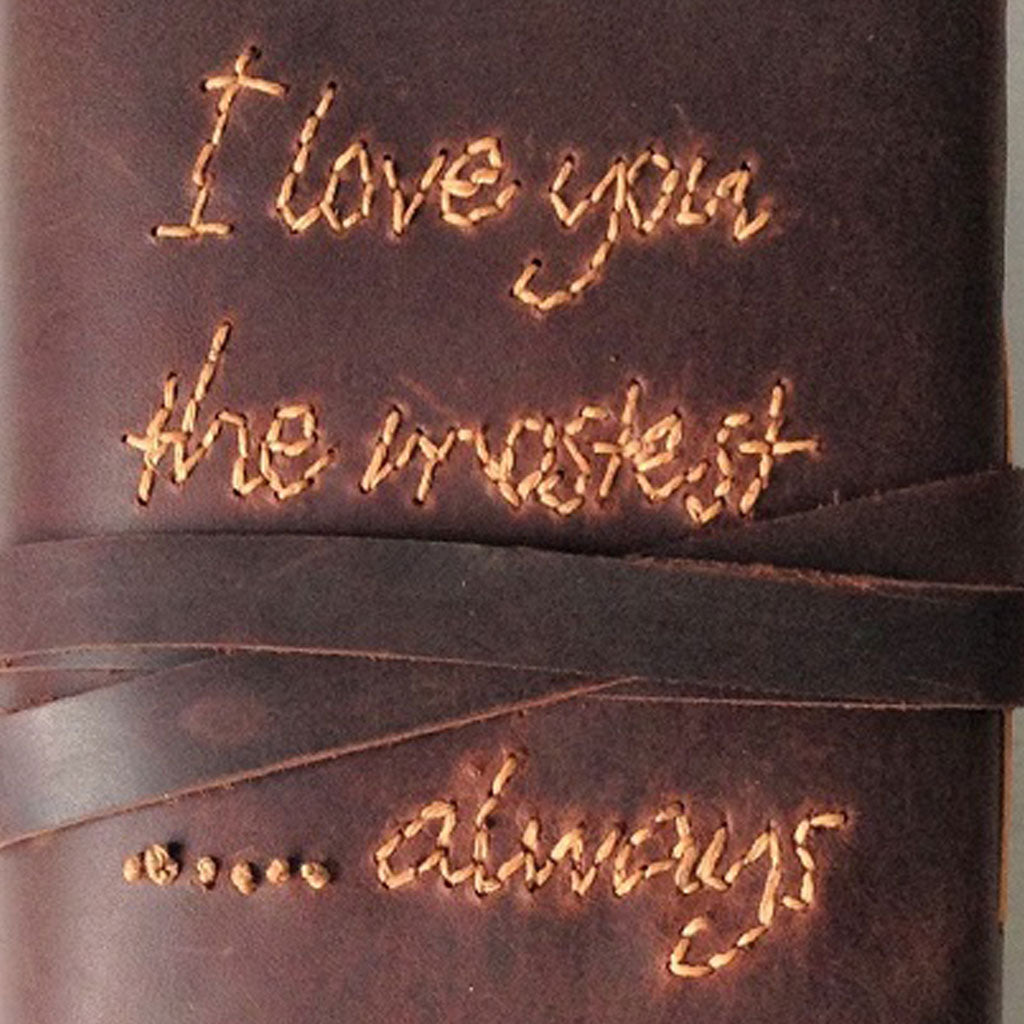 I love you
the mostest
...... always